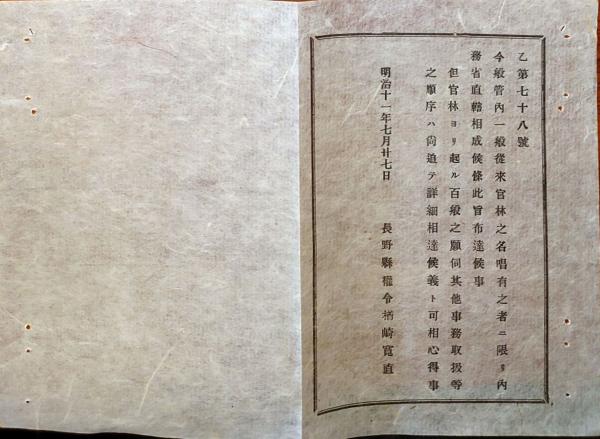 乙第七十八號
今般管內一般從來官林之名唱有之者ニ限リ內
務省直轄相成候條此旨布達候事
但官林ヨリ起ル百般之願伺其他事務取扱等
之順序ハ尙追テ詳細相達候義ト可相心得事
明治十一年七月廿七日
長野縣權令楢崎寬直